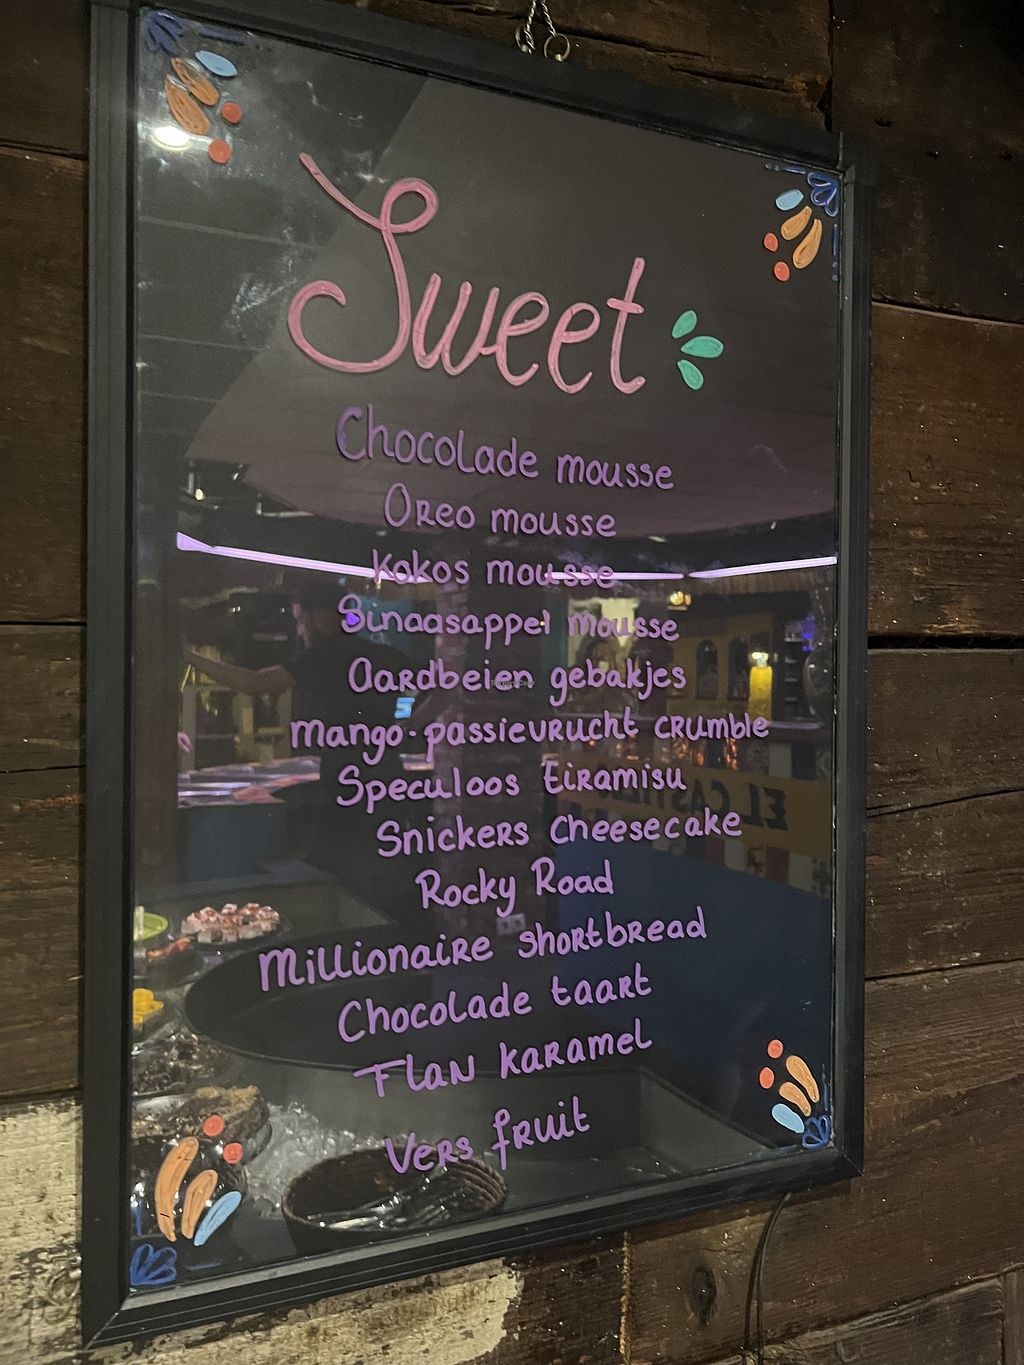 Sweet
Chocolade mousse
Oreo mousse
Kokos mousse
Sinaasappel mousse
Aardbeien gebakjes
Mango-passievrucht crumble
Speculoos tiramisu
Snickers Cheesecake
Rocky Road
Millionaire shortbread
Chocolade taart
Flan karamel
Vers fruit